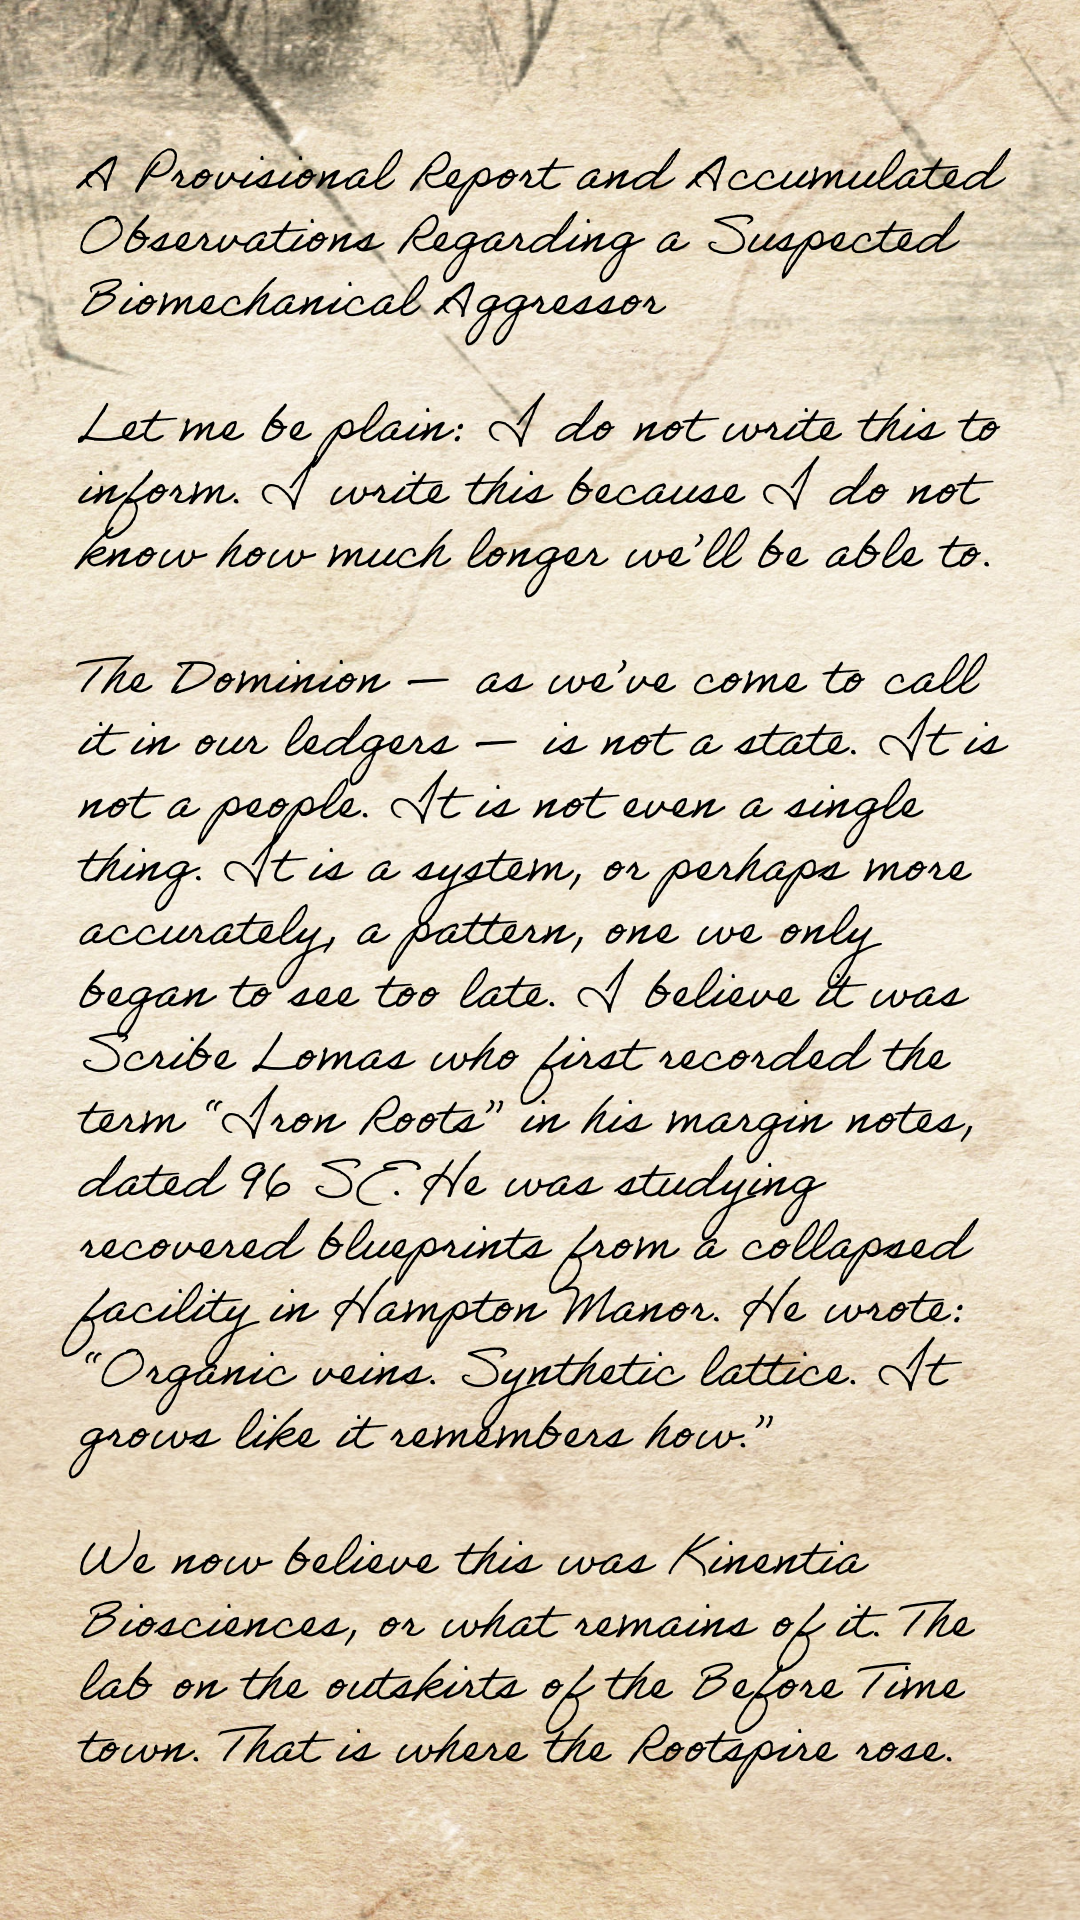 A Provisional Report and Accumulated
Observations Regarding a Suspected
Biomechanical Aggressor
Let me be plain: I do not write this to
inform. I write this because I do not
know how much longer we’ll be able to.
The Dominion — as we’ve come to call
it in our ledgers — is not a state. It is
not a people. It is not even a single
thing. It is a system, or perhaps more
accurately, a pattern, one we only
began to see too late. I believe it was
Scribe Lomas who first recorded the
term “Iron Roots” in his margin notes,
dated 96 SE. He was studying
recovered blueprints from a collapsed
facility in Hampton Manor. He wrote:
“Organic veins. Synthetic lattice. It
grows like it remembers how.”
We now believe this was Kinentia
Biosciences, or what remains of it. The
lab on the outskirts of the Before Time
town. That is where the Rootspire rose.